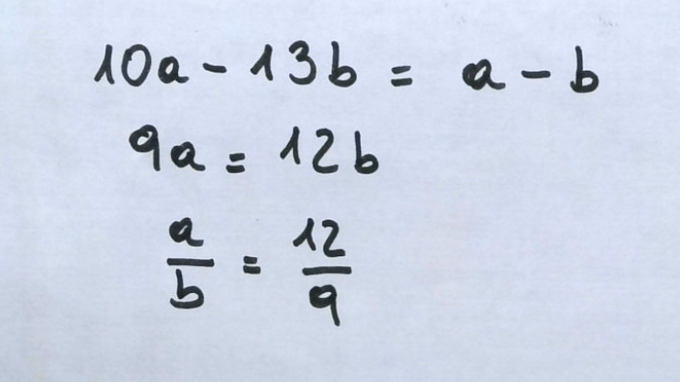 10a - 13b = a - b
9a = 12b
a/b = 12/9